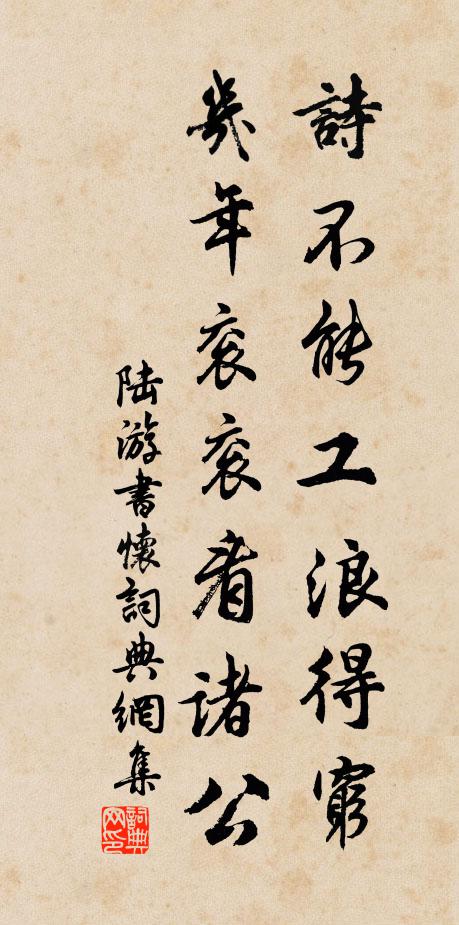 詩不能工浪得窮
幾年衮衮看諸公
陆游書懷詞典網集
詞典网印